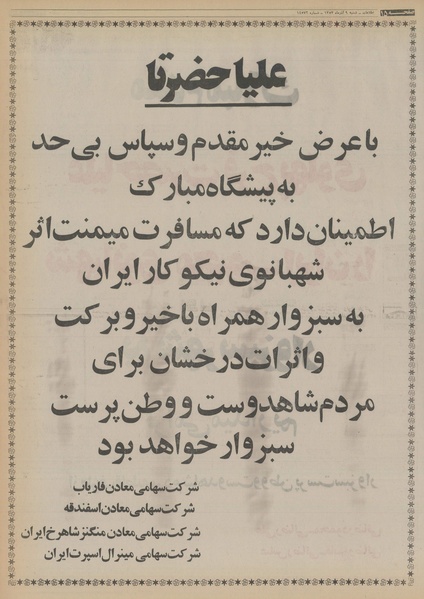 علیاحضرتا
با عرض خیر مقدم و سپاس بی حد
به پیشگاه مبارک
اطمینان دارد که مسافرت میمنت اثر
شهبانوی نیکوکار ایران
به سبزوار همراه با خیر و برکت
و اثرات درخشان برای
مردم شاهدوست و وطن پرست
سبزوار خواهد بود
شرکت سهامی معادن فاریاب
شرکت سهامی معادن اسفندقه
شرکت سهامی معادن منگنز شاهرخ ایران
شرکت سهامی مینرال اسپرت ایران